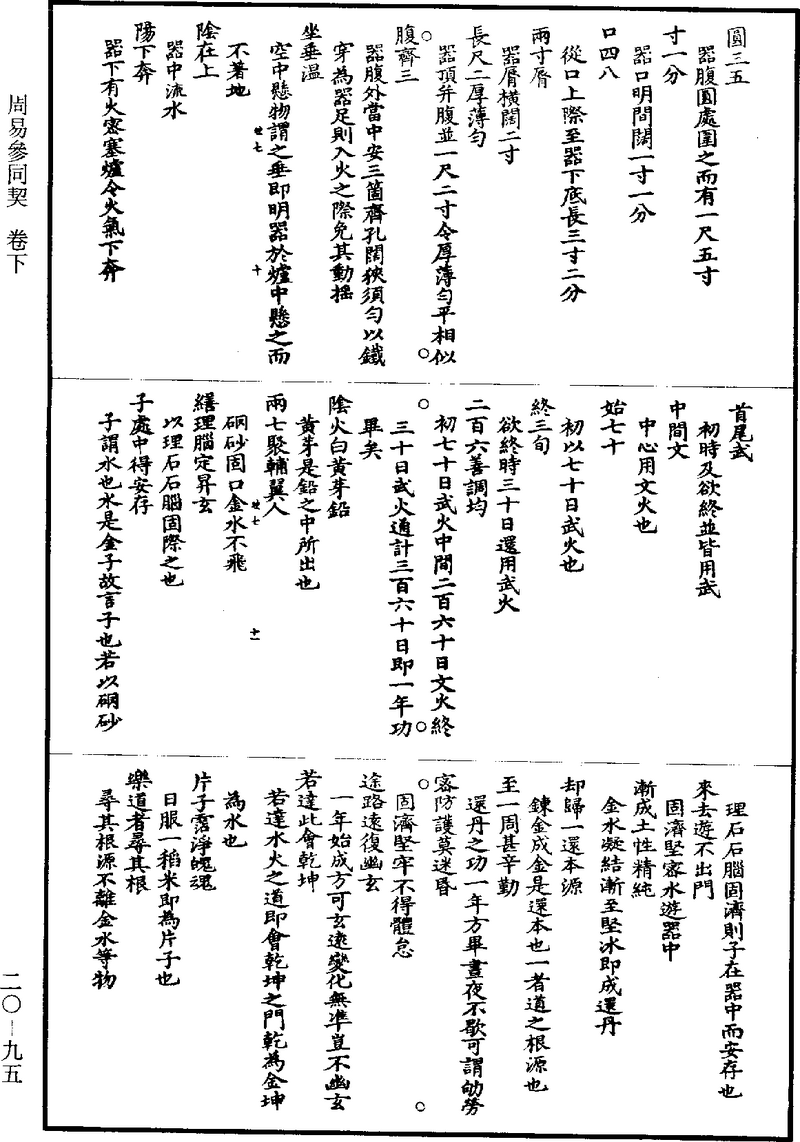 圓三五
器腹圓處圍之而有一尺五寸
寸一分
器口明間闊一寸一分
口四八
從口上際至器下底長三寸二分
兩寸脣
器脣橫闊二寸
長尺二厚薄勻
器頂弁腹並一尺二寸令厚薄勻平相似
腹齊三
器腹外當中安三箇齊孔闊狹須勻以鐵
穿為器足則入火之際免其動搖
坐垂溫
空中懸物謂之垂即明器於爐中懸之而
不著地
陰在上
器中流水
陽下奔
器下有火密塞爐令火氣下奔
首尾武
初時及欲終並皆用武
中間文
中心用文火也
始七十
初以七十日武火也
終三旬
欲終時三十日還用武火
二百六善調均
初七十日武火中間二百六十日文火終
三十日武火通計三百六十日即一年功
畢矣
陰火白黃芽鉛
黃芽是鉛之中所出也
兩七聚輔翼人
硇砂固口金水不飛
繕理腦定昇玄
以理石石腦固際之也
子處中得安存
子謂水也水是金子故言子也若以硇砂
理石石腦固濟則子在器中而安存也
來去遊不出門
固濟堅密水遊器中
漸成土性精純
金水凝結漸至堅冰即成還丹
却歸一還本源
鍊金成金是還本也一者道之根源也
至一周甚辛勤
還丹之功一年方畢晝夜不歇可謂劬勞
密防護莫迷昏
固濟堅牢不得體怠
途路遠復幽玄
一年始成方可玄遠變化無準豈不幽玄
若達此會乾坤
若達水火之道即會乾坤之門乾為金坤
為水也
片子霑淨魄魂
日服一稻米即為片子也
樂道者尋其根
尋其根源不離金水等物
周易參同契　卷下
二〇－九五
廿七
十
廿七
十一